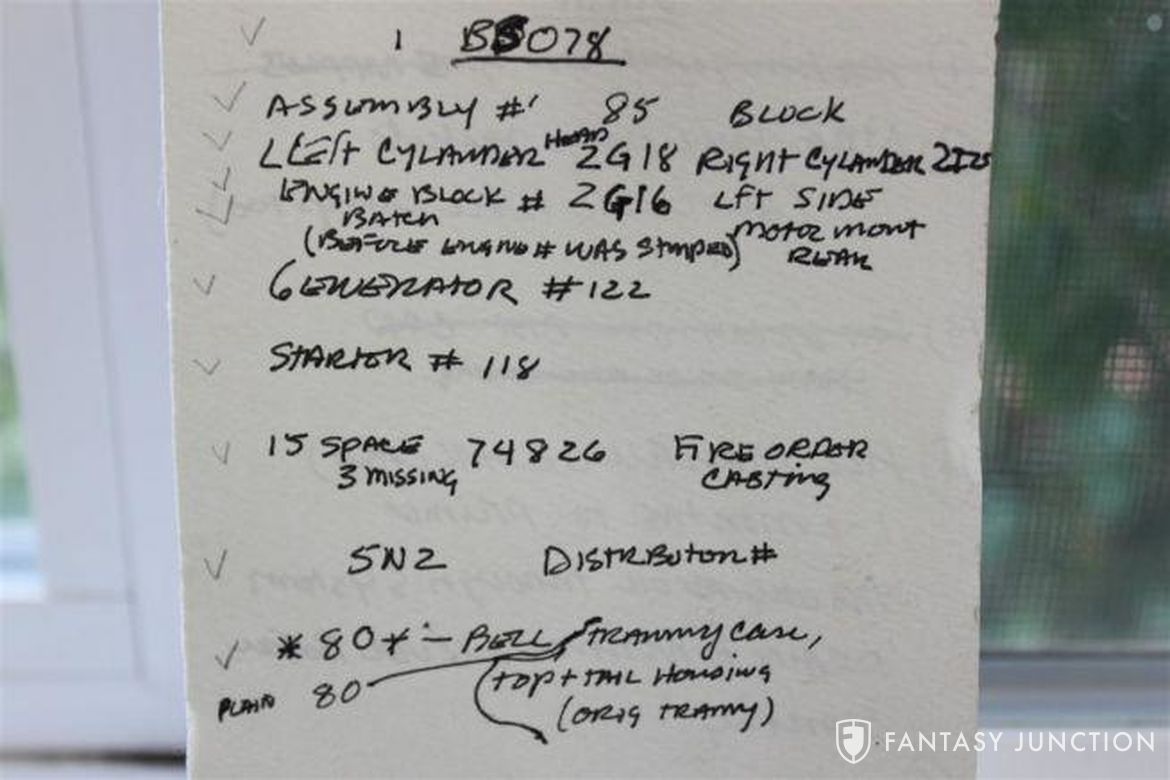 1 BS078
ASSEMBLY # 85 BLOCK
LEFT CYLANDER HEAD 2G18 RIGHT CYLANDER 2I25
ENGINE BLOCK # 2G16 LFT SIDE
BATCH
(BEFORE ENGINE # WAS STMPED) MOTOR MONT
REAR
GENERATOR #122
STARTER # 118
15 SPACE 74826 FIRE ORDER
3 MISSING CASTING
5N2 DISTRIBUTOR #
* 80 * - BELL TRANNY CASE,
PLAIN 80 TOP + TAIL HOUSING
(ORIG TRANNY)
FANTASY JUNCTION